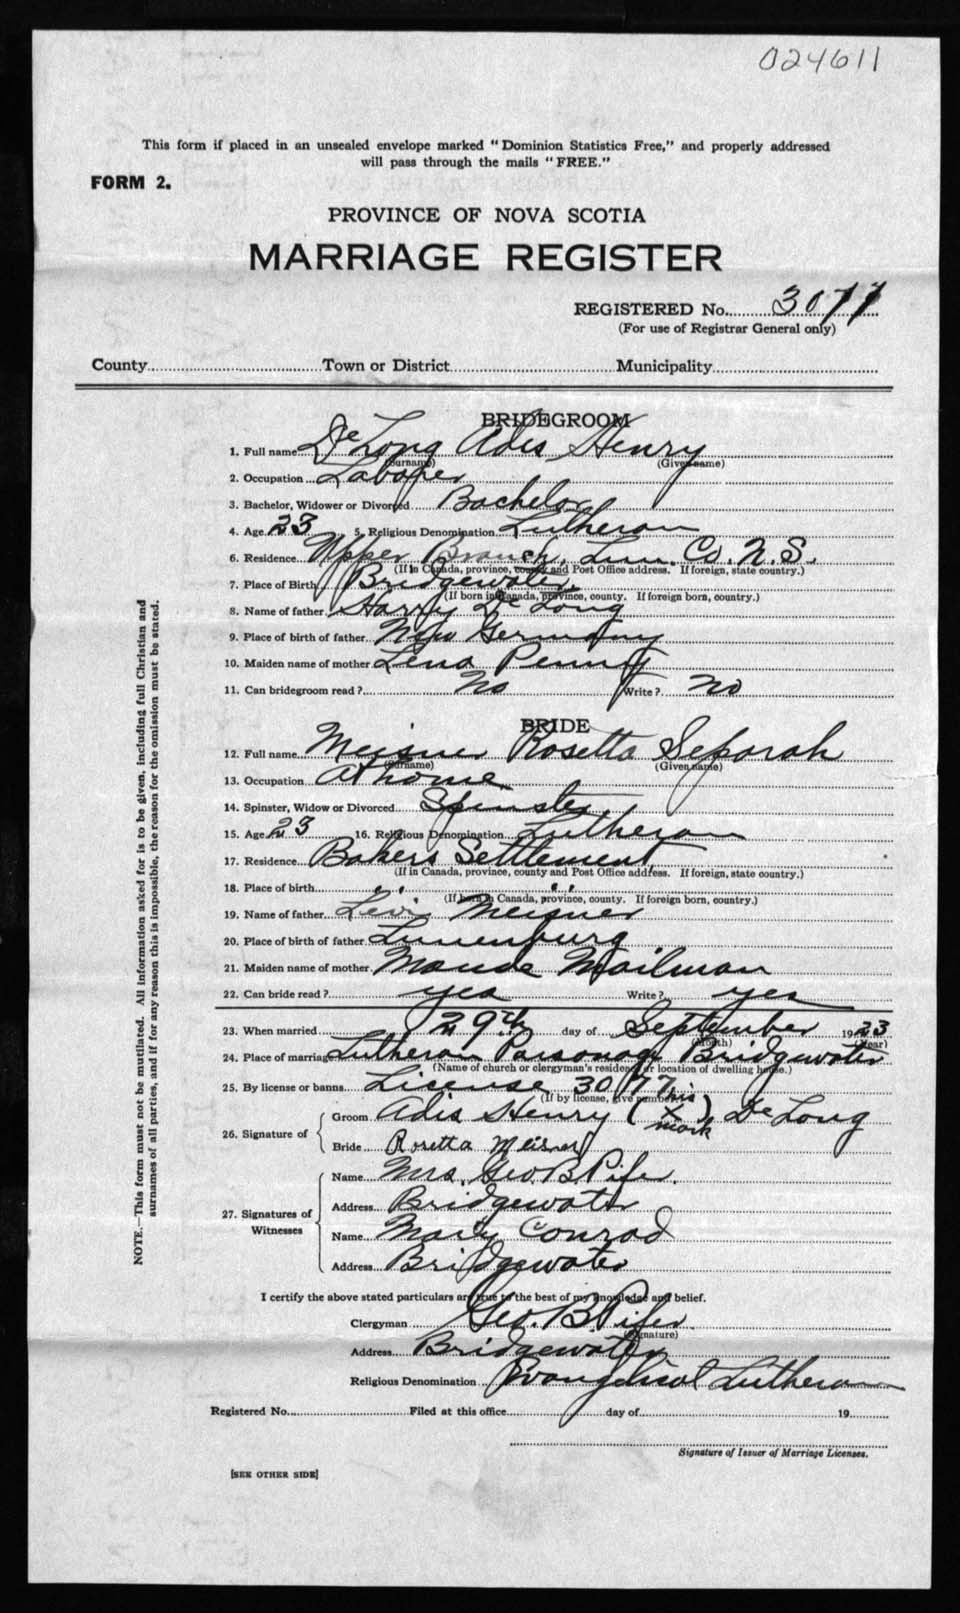 024611
This form if placed in an unsealed envelope marked "Dominion Statistics Free," and properly addressed
will pass through the mails "FREE."
FORM 2.
PROVINCE OF NOVA SCOTIA
MARRIAGE REGISTER
REGISTERED No. 3077
(For use of Registrar General only)
County Town or District Municipality
BRIDEGROOM
1. Full name De Long Adis Henry
(Surname) (Given name)
2. Occupation Laborer
3. Bachelor, Widower or Divorced Bachelor
4. Age 23 5. Religious Denomination Lutheran
6. Residence Upper Branch, Lun. Co. N.S.
(If in Canada, province, county and Post Office address. If foreign, state country.)
7. Place of Birth Bridgewater.
(If born in Canada, province, county. If foreign born, country.)
8. Name of father Harry De Long
9. Place of birth of father New Germany
10. Maiden name of mother Lena Penny
11. Can bridegroom read? No Write? No
BRIDE
12. Full name Meisner Rosetta Seporah
(Surname) (Given name)
13. Occupation At home
14. Spinster, Widow or Divorced Spinster
15. Age 23 16. Religious Denomination Lutheran
17. Residence Bakers Settlement
(If in Canada, province, county and Post Office address. If foreign, state country.)
18. Place of birth " "
(If born in Canada, province, county. If foreign born, country.)
19. Name of father Levi Meisner
20. Place of birth of father Lunenburg
21. Maiden name of mother Maude Mailman
22. Can bride read? yes Write? yes
23. When married 29th day of September 1923
(Month) (Year)
24. Place of marriage Lutheran Parsonage Bridgewater
(Name of church or clergyman's residence or location of dwelling house.)
25. By license or banns License 3077
(If by license, give number)
26. Signature of Groom Adis Henry (his X mark) De Long
Bride Rosetta Meisner
27. Signatures of Witnesses Name Mrs. Geo. B Pifer.
Address Bridgewater
Name Mary Conrad
Address Bridgewater
I certify the above stated particulars are true to the best of my knowledge and belief.
Clergyman Geo. B Pifer
(Signature)
Address Bridgewater
Religious Denomination Evangelical Lutheran
Registered No. Filed at this office day of 19
Signature of Issuer of Marriage Licenses.
[SEE OTHER SIDE]
NOTE.—This form must not be mutilated. All information asked for is to be given, including full Christian and
surnames of all parties, and if for any reason this is impossible, the reason for the omission must be stated.